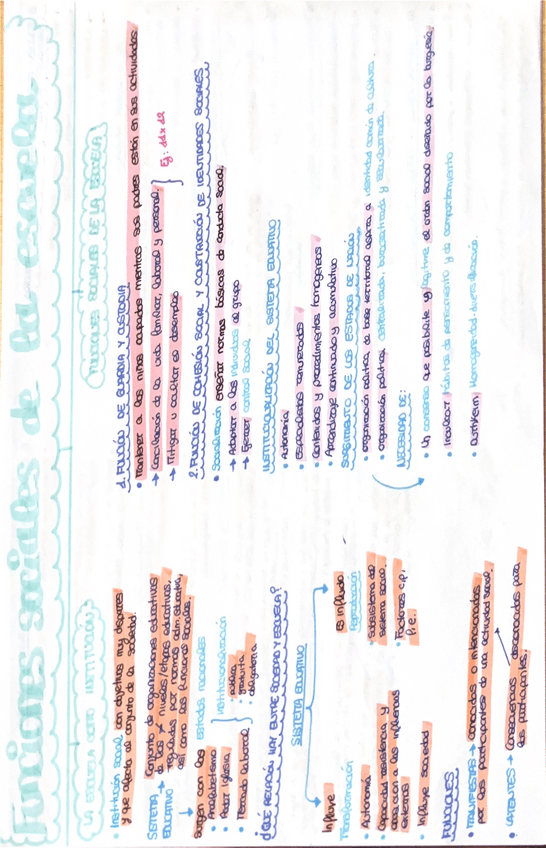 Funciones sociales de la escuela
LA ESCUELA COMO INSTITUCIÓN
• Institución social con objetivos muy dispares
y que afecta al conjunto de la sociedad.
SISTEMA EDUCATIVO → Conjunto de organizaciones educativas
de las ≠ niveles/etapas educativas,
reguladas por normas adm. educativa,
así como sus funciones sociales.
Surgen con los estados nacionales
• Analfabetismo
• Poder Iglesia
• Mercado laboral
} institucionalización
• pública
• gratuita
• obligatoria
¿QUÉ RELACIÓN HAY ENTRE SOCIEDAD Y ESCUELA?
SISTEMA EDUCATIVO
Influye
Transformación
• Autonomía
• Capacidad resistencia y
oposición a las influencias
externas
• Influye sociedad
Es influido
Reproducción
• Subsistema del
sistema social.
• Factores
FUNCIONES
• MANIFIESTAS → Conocidas o intencionadas
por los participantes de una actividad social.
• LATENTES → Consecuencias desconocidas para
los participantes.
FUNCIONES SOCIALES DE LA ESCUELA
1. FUNCIÓN DE GUARDIA Y CUSTODIA
• Mantener a los niños ocupados mientras sus padres están en sus actividades.
→ Conciliación de la vida familiar, laboral y personal.
→ Mitigar u ocultar el desempleo
} Ej:
2. FUNCIÓN DE COHESIÓN SOCIAL Y CONSTRUCCIÓN DE IDENTIDADES SOCIALES
• Socialización enseñar normas básicas de conducta social.
→ Adaptar a los individuos al grupo
→ Ejercer control social
INSTITUCIONALIZACIÓN DEL SISTEMA EDUCATIVO
• Autonomía
• Especialistas remunerados
• Contenidos y procedimientos homogéneos
• Aprendizaje continuado y acumulativo
SURGIMIENTO DE LOS ESTADOS DE NACIÓN
• organización política, de base territorial sujeta a identidad común de cultura.
• organización política centralizada, burocratizada y
NECESIDAD DE:
• Un consenso que posibilite y legitime el orden social diseñado por la burguesía.
• Inculcar hábitos de pensamiento y de comportamiento
• Homogeneidad-diversificación.